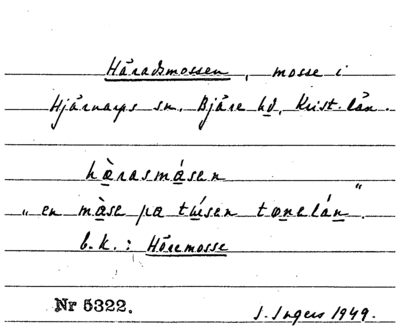 Häradsmossen, mosse i
Hjärnarps sn. Bjäre hd, Krist. län.
hæ̀rasmåsen
"en måse pa tusen tønelån".
b.k.: Häremosse
Nr 5322. I. Ingers 1949.